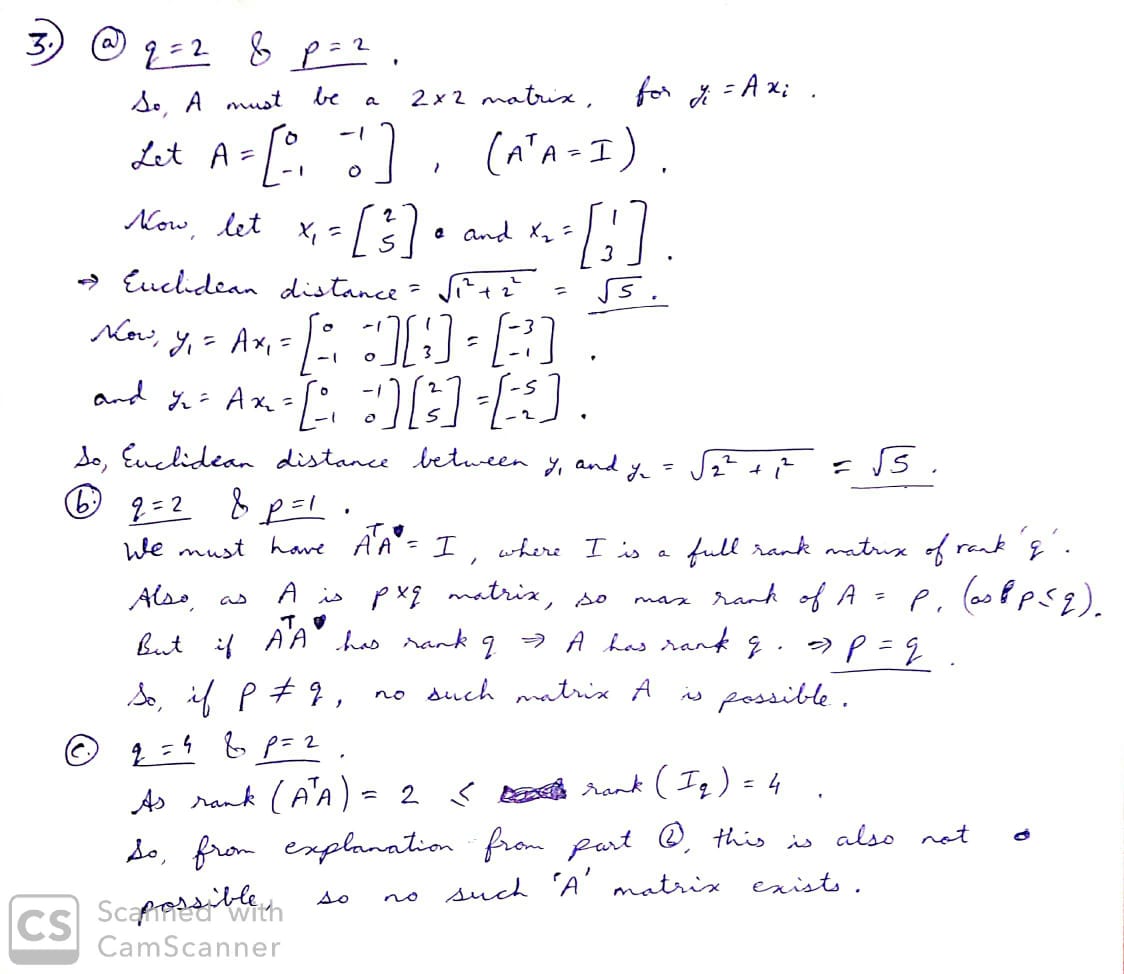 3.) (a) q = 2 & p = 2 .
So, A must be a 2×2 matrix, for yᵢ = A xᵢ .
Let A = [0 -1; -1 0] , (AᵀA = I) .
Now, let x₁ = [2; 5] and x₂ = [1; 3] .
→ Euclidean distance = √(1² + 2²) = √5 .
Now, y₁ = Ax₁ = [0 -1; -1 0] [1; 3] = [-3; -1] .
and y₂ = Ax₂ = [0 -1; -1 0] [2; 5] = [-5; -2] .
So, Euclidean distance between y₁ and y₂ = √(2² + 1²) = √5 .
(b) q = 2 & p = 1 .
We must have AᵀA = I , where I is a full rank matrix of rank 'q' .
Also, as A is p×q matrix, so max rank of A = p, (as p ≤ q).
But if AᵀA has rank q ⇒ A has rank q . ⇒ p = q .
So, if p ≠ q, no such matrix A is possible .
(c) q = 4 & p = 2 .
As rank (AᵀA) = 2 < rank (I_q) = 4 .
So, from explanation from part (b), this is also not
possible, so no such 'A' matrix exists .
CS Scanned with
CamScanner